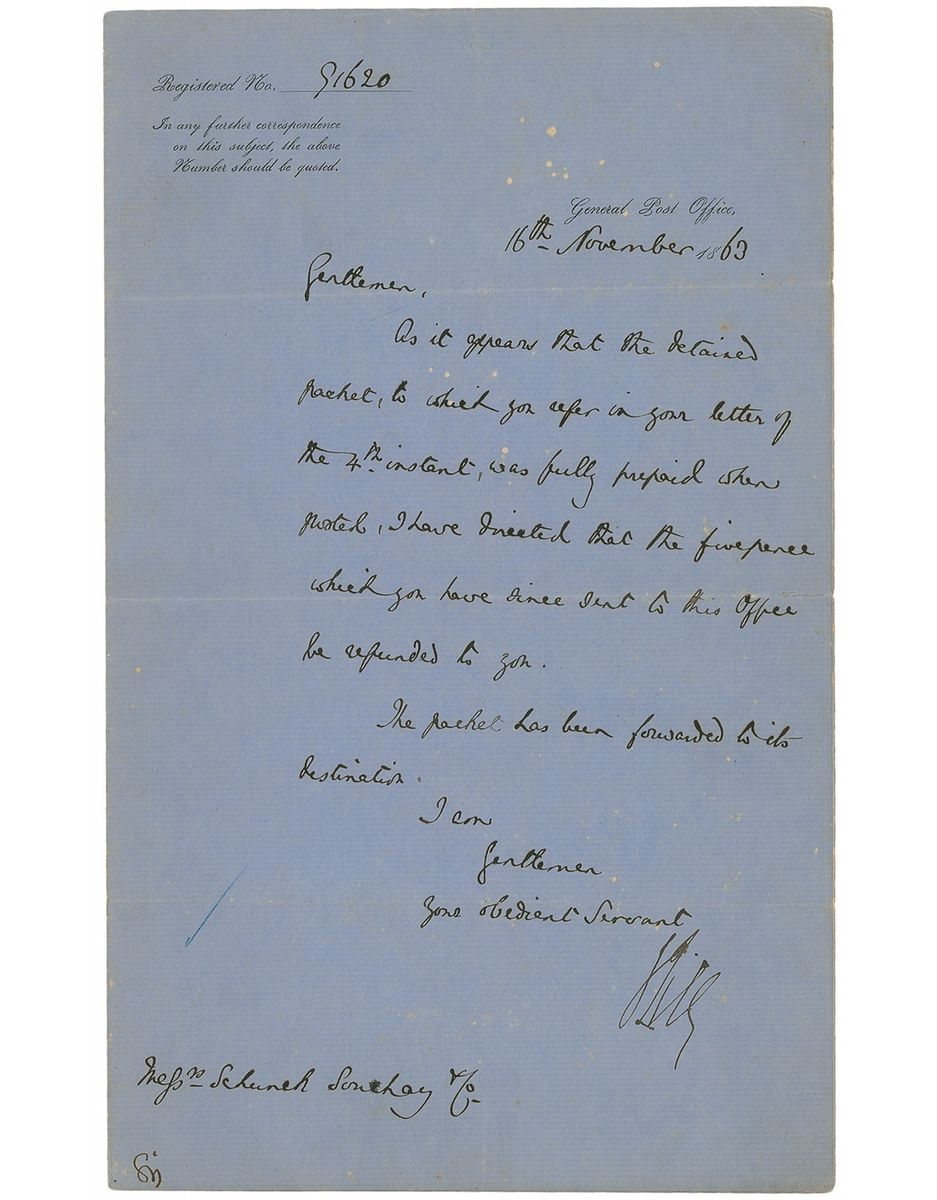 Registered No. 91620
In any further correspondence
on this subject, the above
Number should be quoted.
General Post Office,
16th November 1863
Gentlemen,
As it appears that the detained
packet, to which you refer in your letter of
the 4th instant, was fully prepaid when
posted, I have directed that the fivepence
which you have since sent to this Office
be refunded to you.
The packet has been forwarded to its
destination.
I am
Gentlemen
Your obedient Servant
Messrs Schunck Souchay & Co